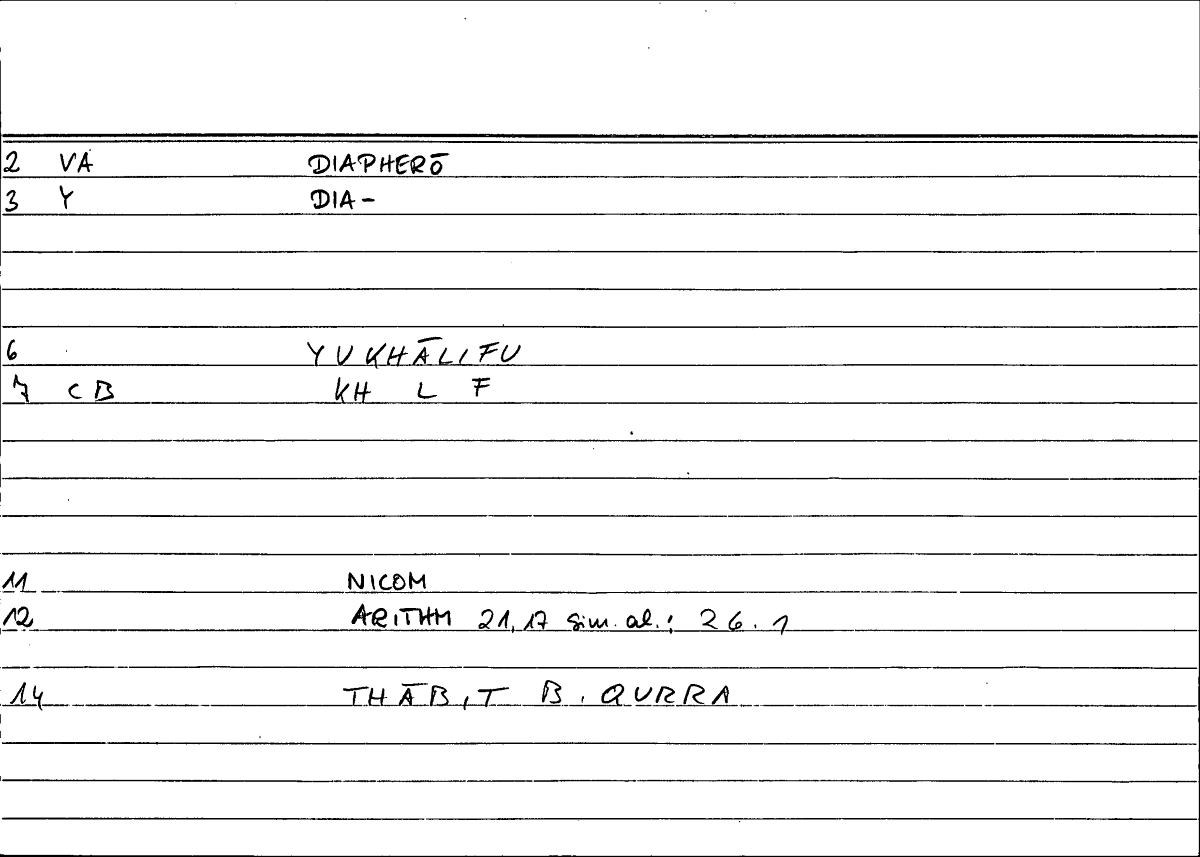 2 VA DIAPHERŌ
3 Y DIA-
6 YUKHĀLIFU
7 CB KH L F
11 NICOM
12 ARITHM 21,17 sim. al.; 26.1
14 THĀBIT B. QURRA